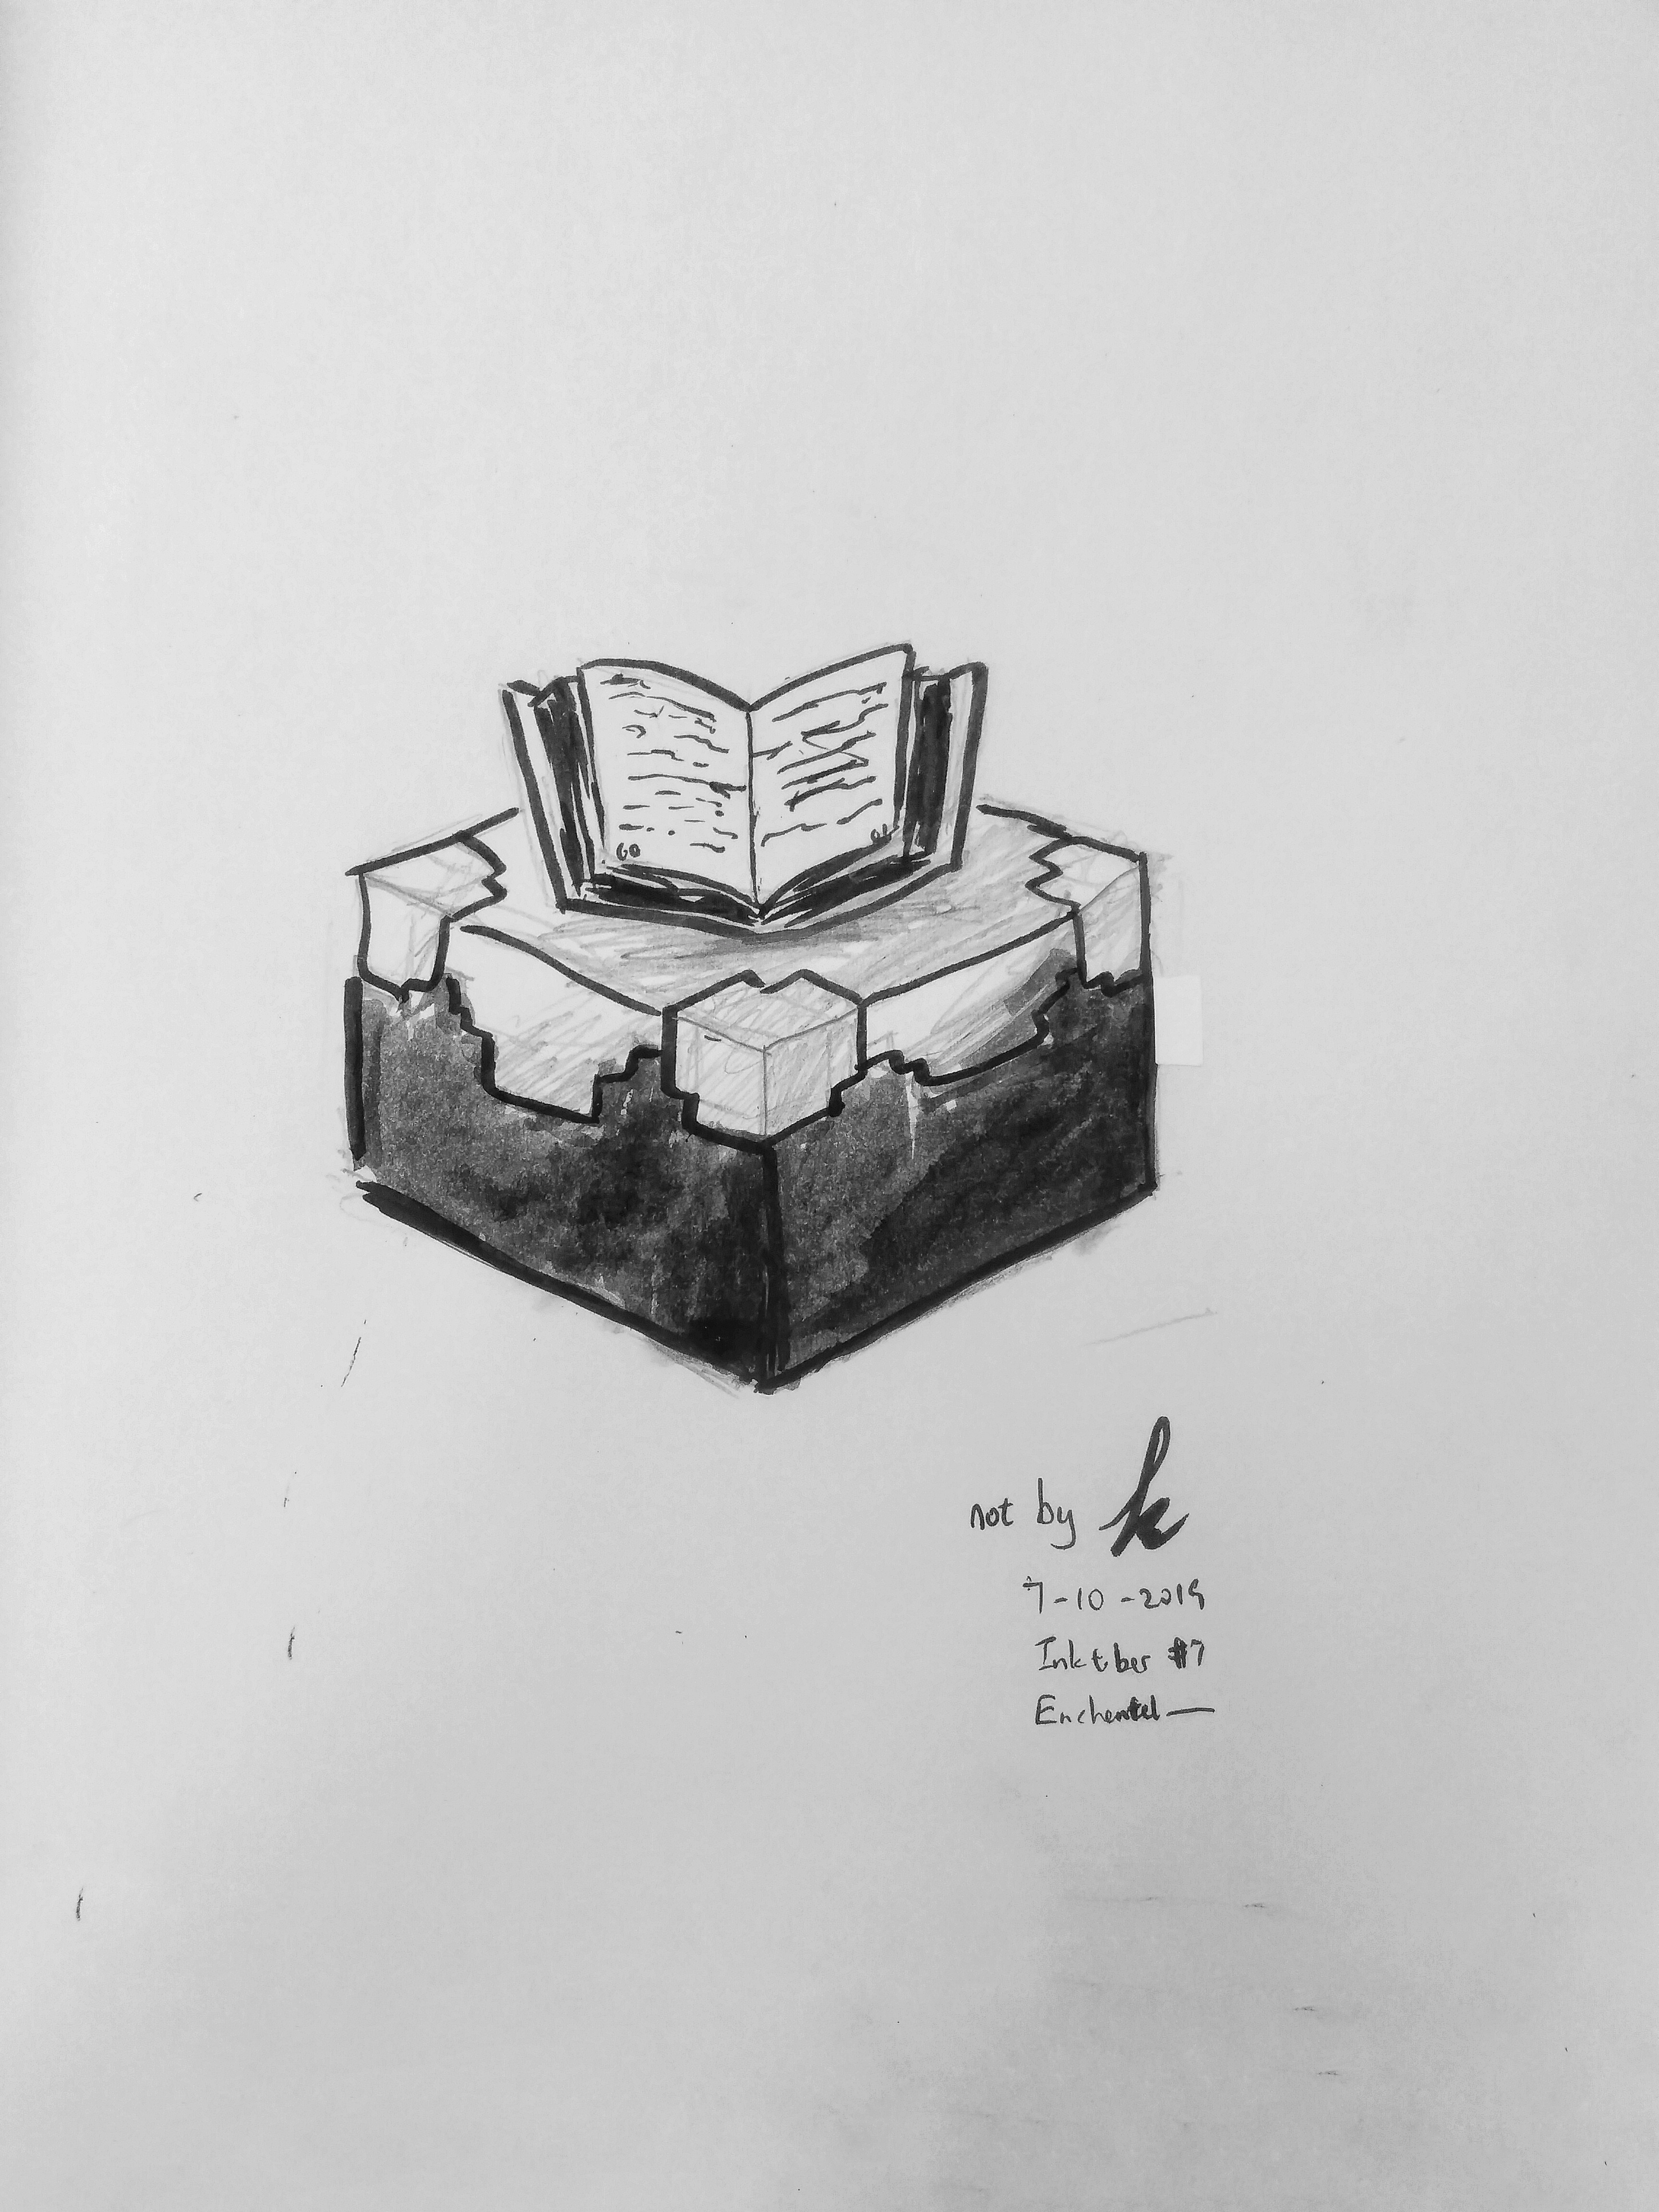 60
not by k
7-10-2019
Inktber #7
Enchanted —